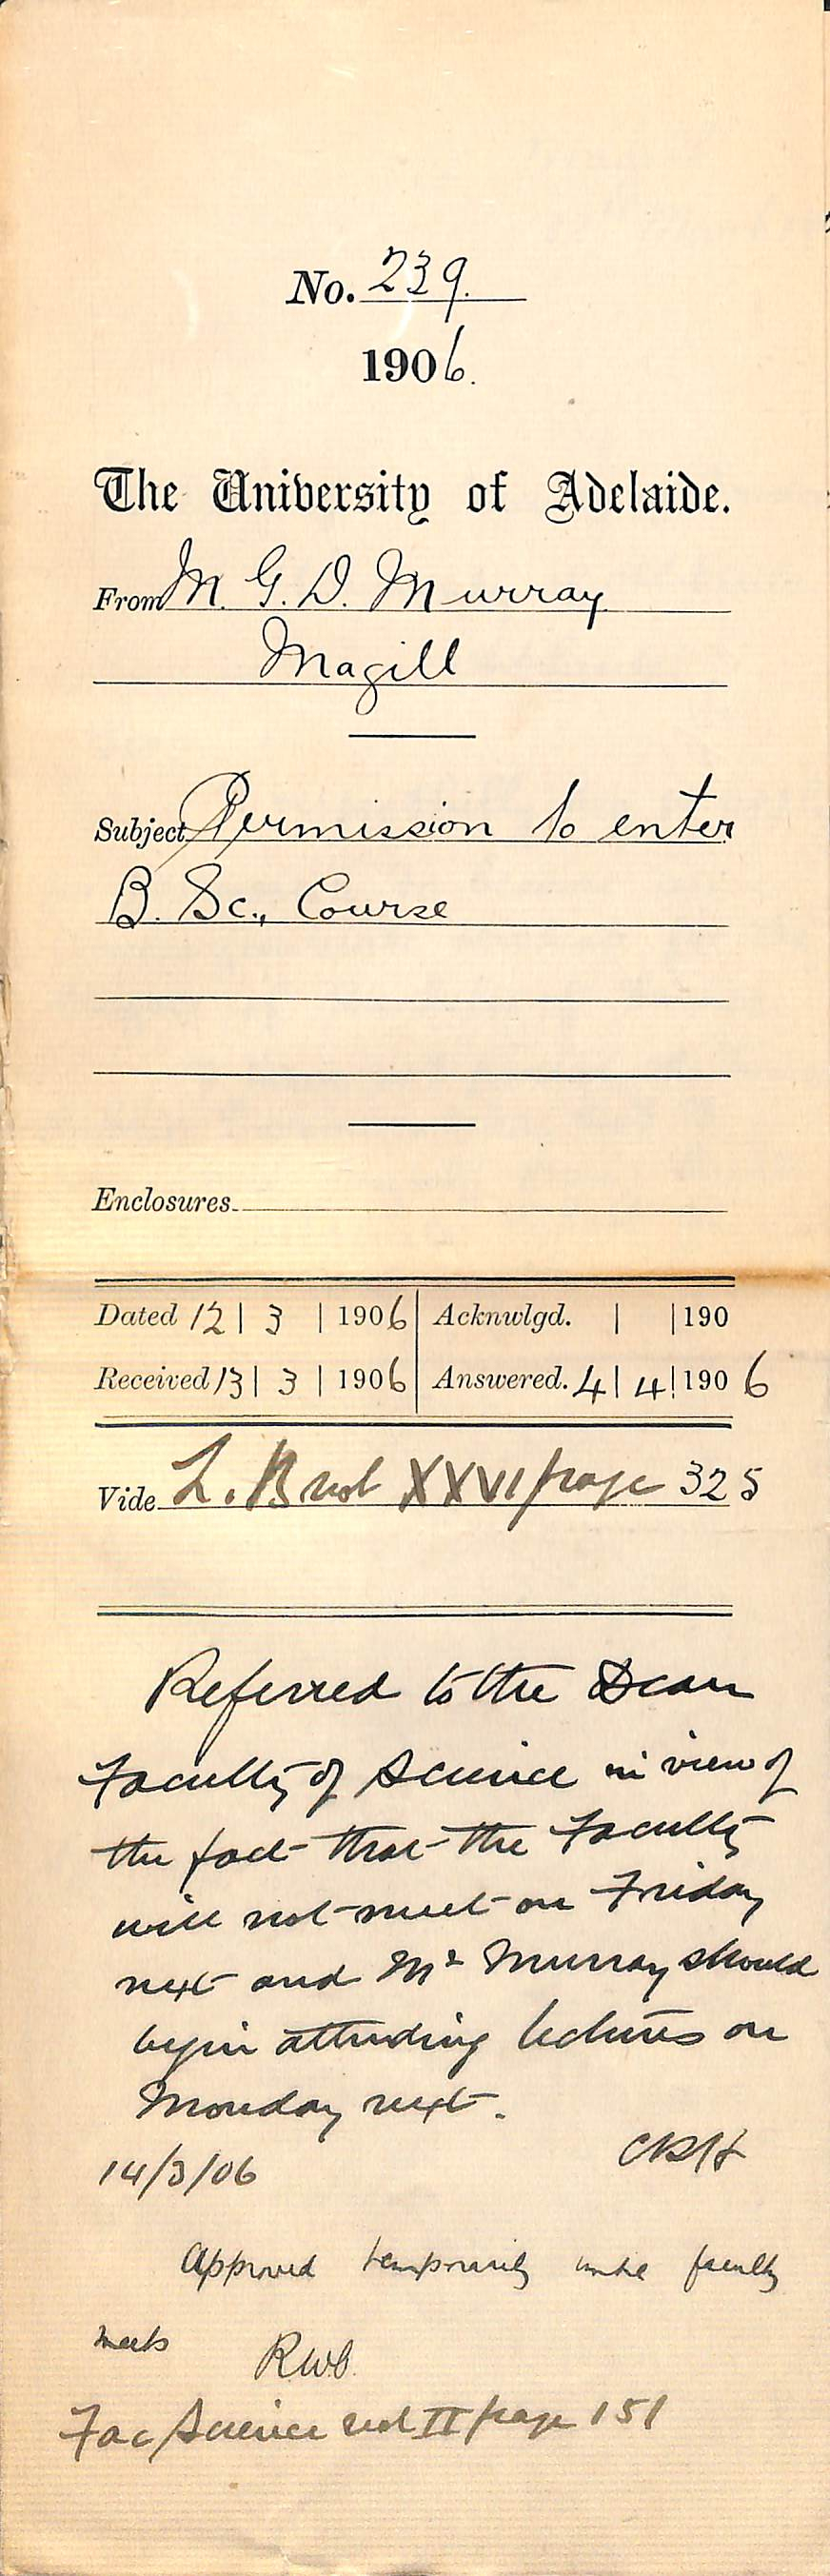 No. 239.
1906.
The University of Adelaide.
From M. G. D. Murray
Magill
Subject Permission to enter
B. Sc., Course
Enclosures
Dated 12 | 3 | 1906 Acknwlgd. | | 190
Received 13 | 3 | 1906 Answered. 4 | 4 | 190 6
Vide L. B vol XXVI page 325
Referred to the Dean
Faculty of Science in view of
the fact that the Faculty
will not meet on Friday
next and Mr Murray should
begin attending lectures on
Monday next.
CRH
14/3/06
Approved temporarily until faculty
meets RWC.
Fac Science vol II page 151